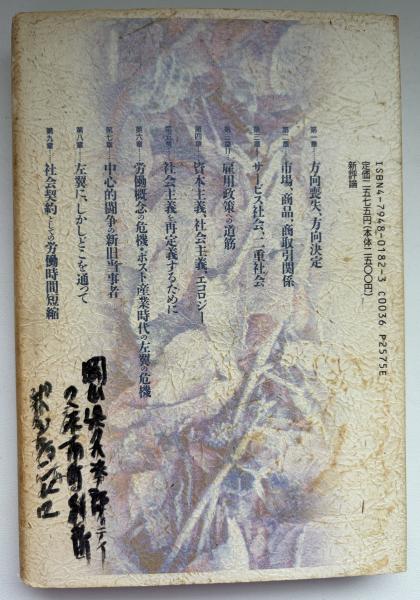 ISBN4-7948-0182-3 C0036 P2575E
定価二五七五円(本体二五〇〇円)
新評論
第一章 方向喪失、方向決定
第二章 市場、商品、商取引関係
第三章 サービス社会、二重社会
第三章II 雇用政策への道筋
第四章 資本主義、社会主義、エコロジー
第五章 社会主義を再定義するために
第六章 労働概念の危機・ポスト産業時代の左翼の危機
第七章 中心的闘争の新旧当事者
第八章 左翼に、しかしどこを通って
第九章 社会契約としての労働時間短縮